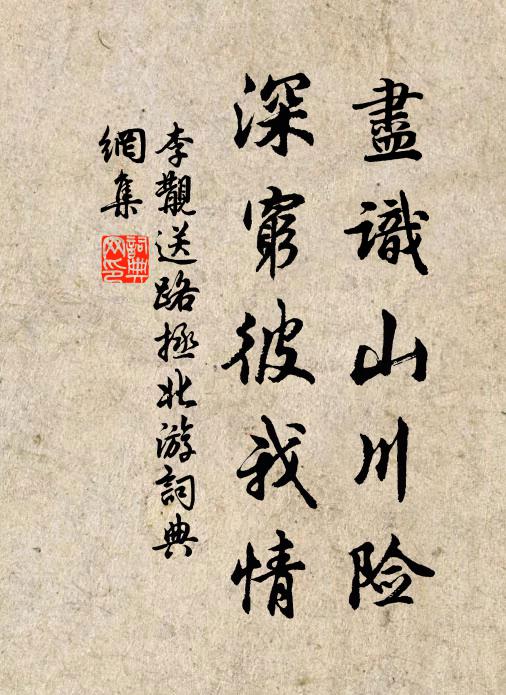 盡識山川险
深窮彼我情
李觀送路拯北游詞典
網集
詞典
网印